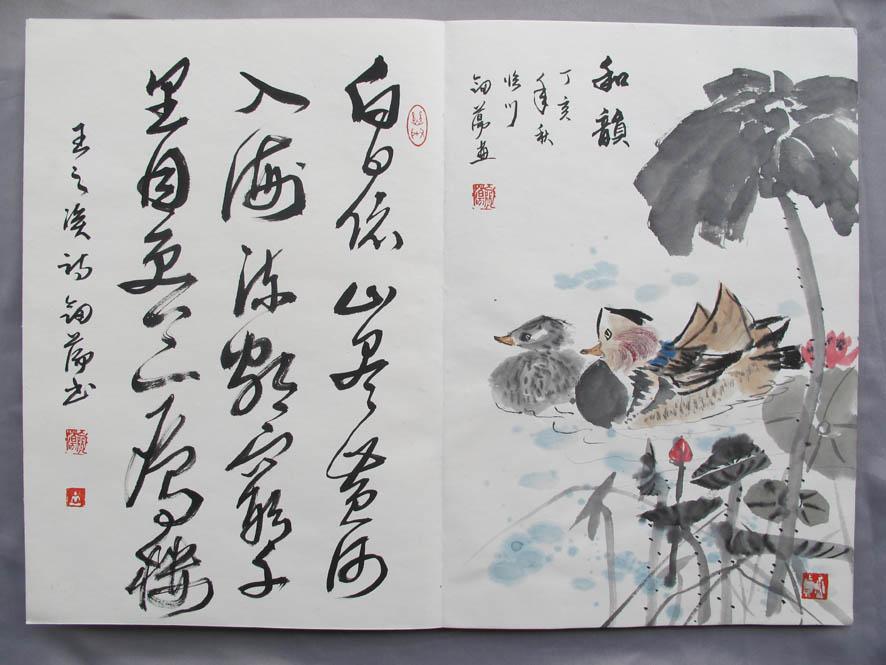 和韻
丁亥
年秋
臨川
畫
白日依山尽黄河
入海流欲窮千
里目更上一層樓
王之涣诗 书